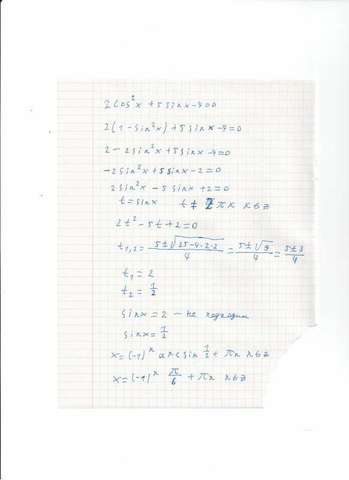 2cos²x + 5sinx - 4=0
2(1-sin²x) + 5sinx - 4=0
2 - 2sin²x + 5sinx - 4=0
-2sin²x + 5sinx - 2=0
2sin²x - 5sinx + 2=0
t=sinx t≠ 2πk k∈z
2t² - 5t + 2=0
t₁,₂ = (5±√(25-4·2·2))/4 = (5±√9)/4 = (5±3)/4
t₁ = 2
t₂ = 1/2
sinx = 2 - не подходит
sinx = 1/2
x = (-1)ᵏ arcsin 1/2 + πk k∈z
x = (-1)ᵏ π/6 + πk k∈z